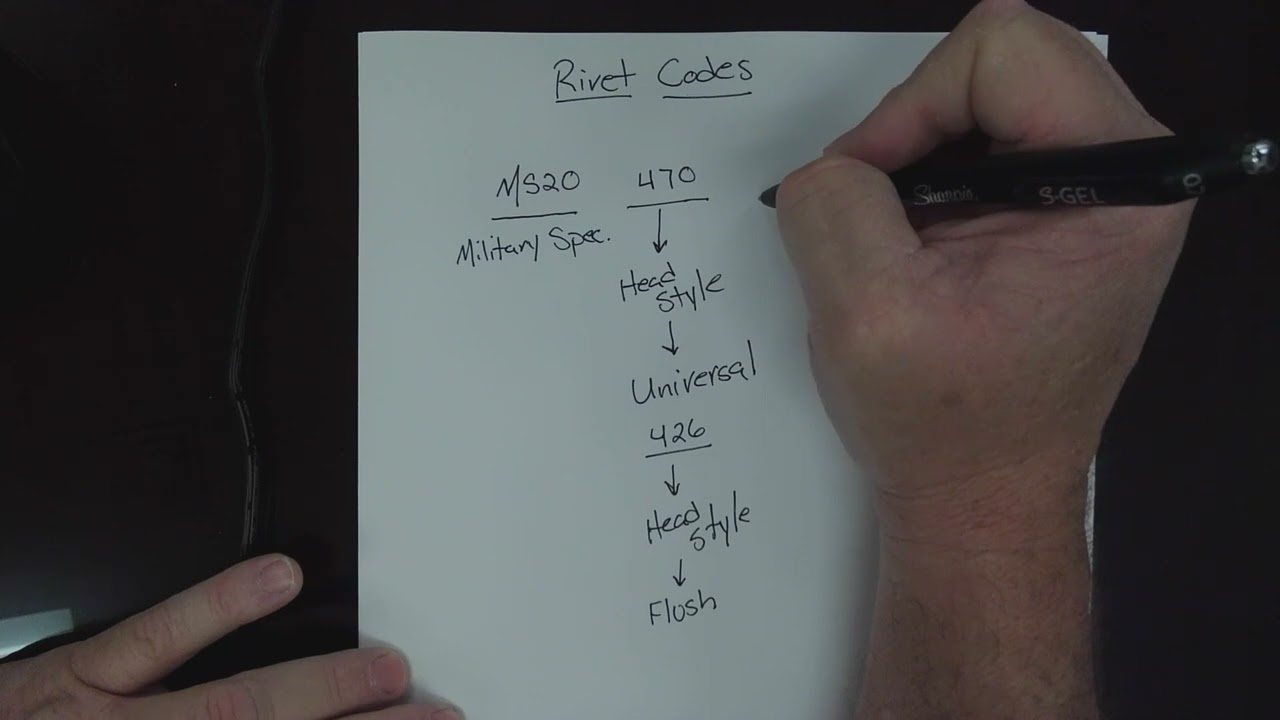 Rivet Codes
MS20 470
Military Spec.
Head
Style
Universal
426
Head
Style
Flush
Sharpie.
S·GEL